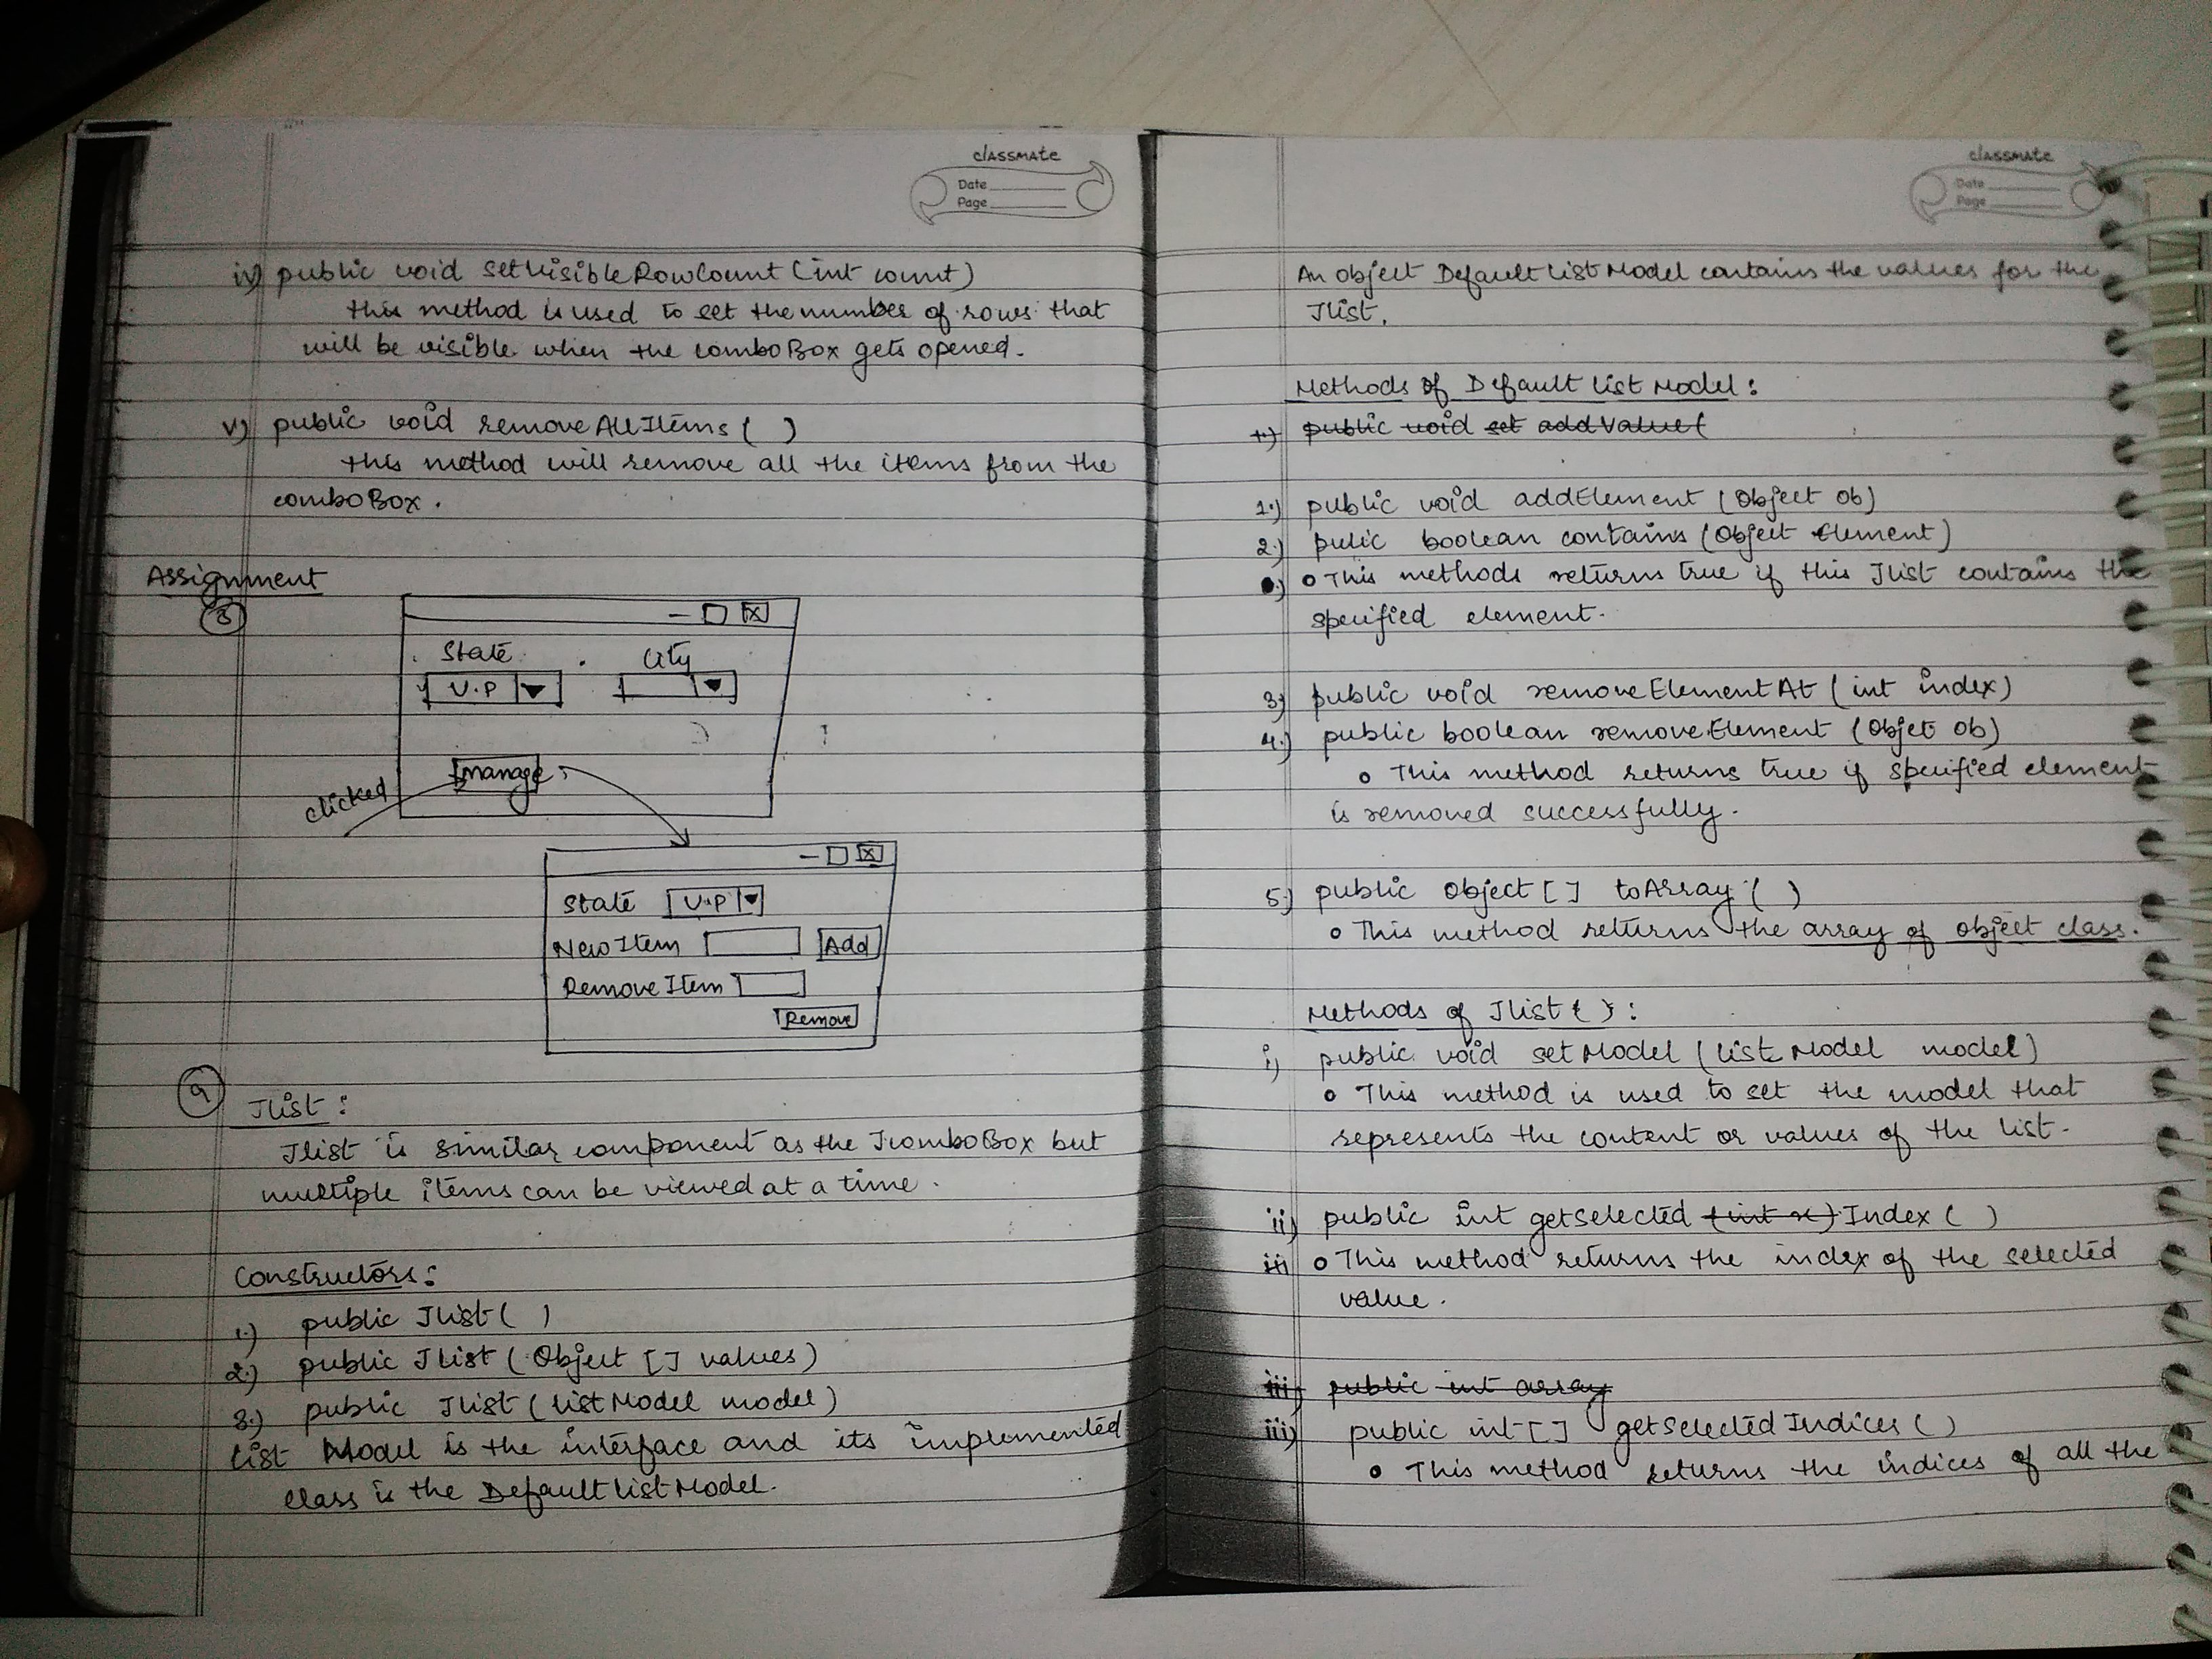 classmate
Date
Page
iv) public void setVisibleRowCount (int count)
this method is used to set the number of rows that
will be visible when the comboBox gets opened.
v) public void removeAllItems ( )
this method will remove all the items from the
comboBox.
Assignment
8
State City
U.P
manage
clicked
State U.P
New Item Add
Remove Item
Remove
9
Jlist :
Jlist is similar component as the JcomboBox but
multiple items can be viewed at a time.
Constructors :
1.) public Jlist ( )
2.) public Jlist ( Object [] values)
3.) public Jlist ( list Model model)
list Model is the interface and its implemented
class is the Default list Model.
classmate
Date
Page
An object Default list Model contains the values for the
Jlist.
Methods of Default list Model :
1.) public void set addValue (
1.) public void addElement (Object ob)
2.) pulic boolean contains (Object Element)
o This methods returns true if this Jlist contains the
specified element.
3) public void removeElementAt ( int index)
4.) public boolean removeElement (Objet ob)
o This method returns true if specified element
is removed successfully.
5.) public Object [] toArray ( )
o This method returns the array of object class.
Methods of Jlist { } :
i) public void setModel (list Model model)
o This method is used to set the model that
represents the content or values of the list.
ii) public int getSelected (int x) Index ( )
iii o This method returns the index of the selected
value.
iii) public int array
iii) public int [] getSelectedIndices ( )
o This method returns the indices of all the